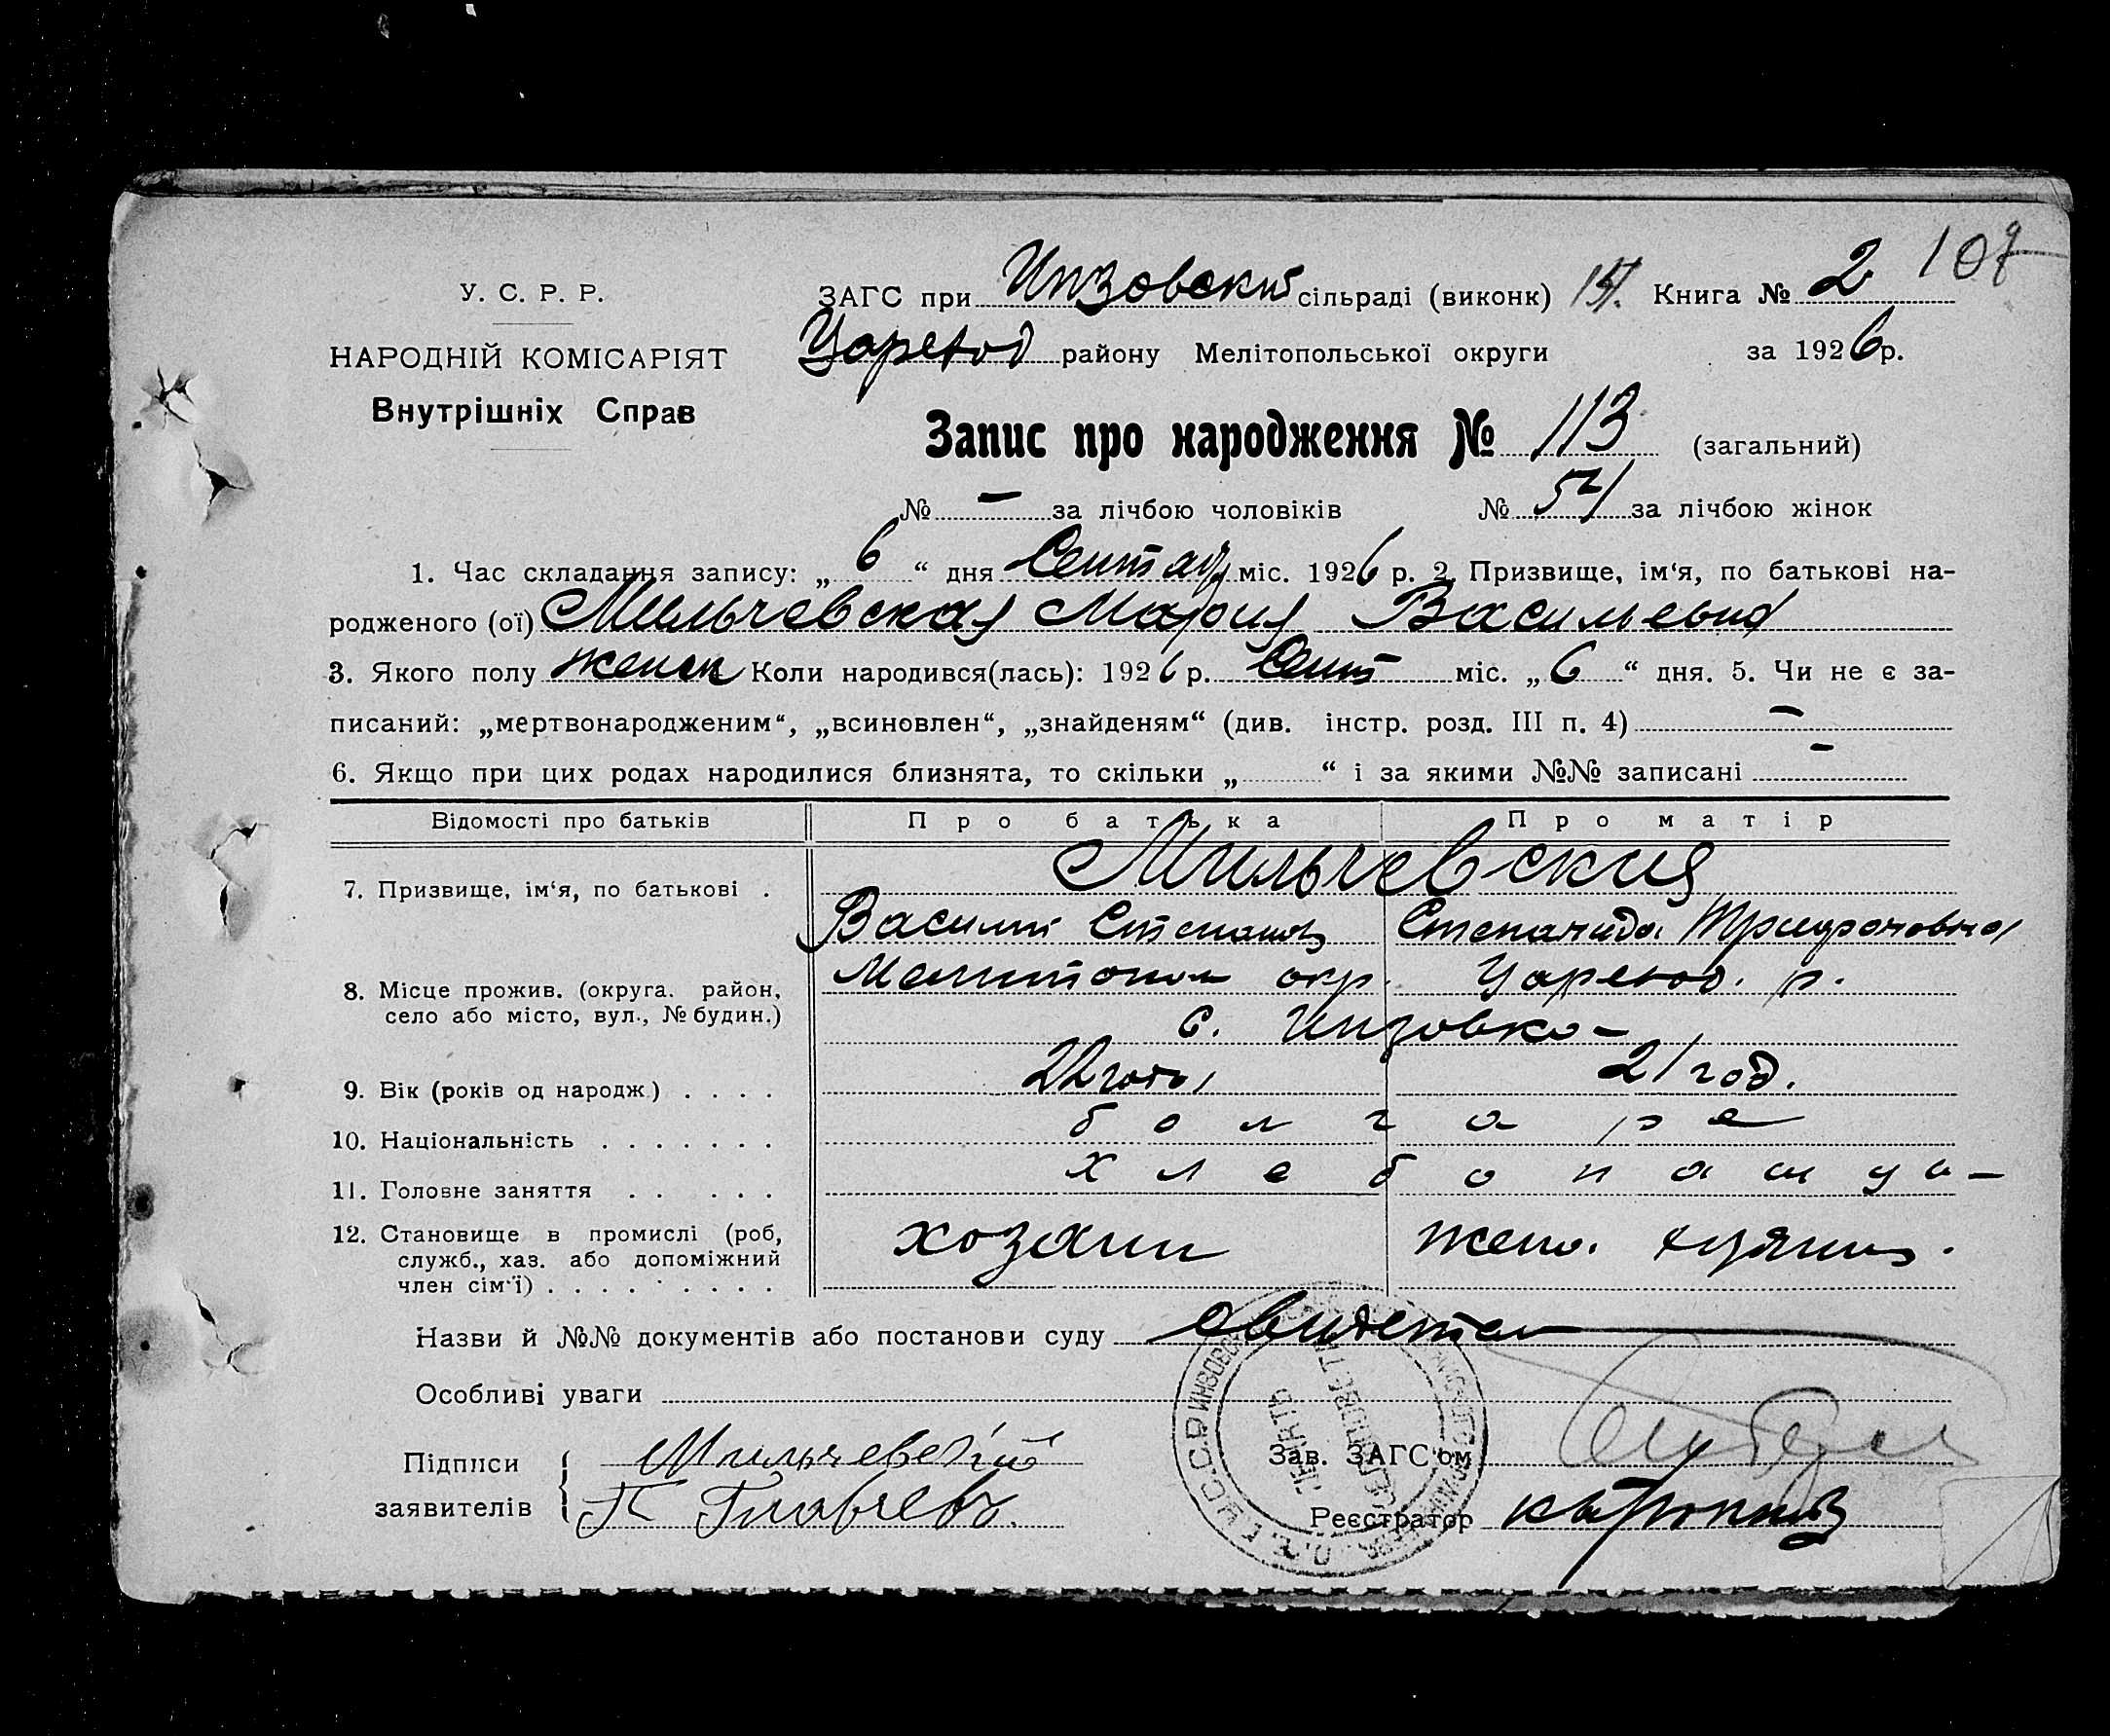 107
У. С. Р. Р.
НАРОДНІЙ КОМІСАРІЯТ
Внутрішніх Справ
ЗАГС при Инзовский сільраді (виконк) Книга № 2
Царевод району Мелітопольської округи за 1926 р.
Запис про народження № 113 (загальний)
№ – за лічбою чоловіків № 54 за лічбою жінок
1. Час складання запису: „ 6 “ дня міс. 1926 р. 2. Призвище, ім‘я, по батькові на-
родженого (ої) Мильчевская Мария Васильевна
3. Якого полу женск Коли народився(лась): 1926 р. Сент міс. „ 6 “ дня. 5. Чи не є за-
писаний: „мертвонародженим“, „всиновлен“, „знайденям“ (див. інстр. розд. III п. 4) –
6. Якщо при цих родах народилися близнята, то скільки „ “ і за якими №№ записані –
Відомості про батьків Про батька Про матір
7. Призвище, ім‘я, по батькові . Мильчевския
Василий Степанов Степанида Трифоновна
8. Місце прожив. (округа. район, село або місто, вул., № будин.) Мелитопол окр. Царевод. р.
с. Инзовка –
9. Вік (років од народж.) . . . . 22 года 21 год.
10. Національність . . . . . . . болгаре
11. Головне заняття . . . . . хлебопашц –
12. Становище в промислі (роб, служб., хаз. або допоміжний член сім‘ї) . . . . . . . . хозяин жена хозяина.
Назви й №№ документів або постанови суду свидетел
Особливі уваги
Підписи заявителів { Мильчевский
П Главчев.
Зав. ЗАГС‘ом
Реєстратор
У.С.С.Р ИНЗОВСК
ПЕЧАТЬ
СЕЛЬСОВЕТА